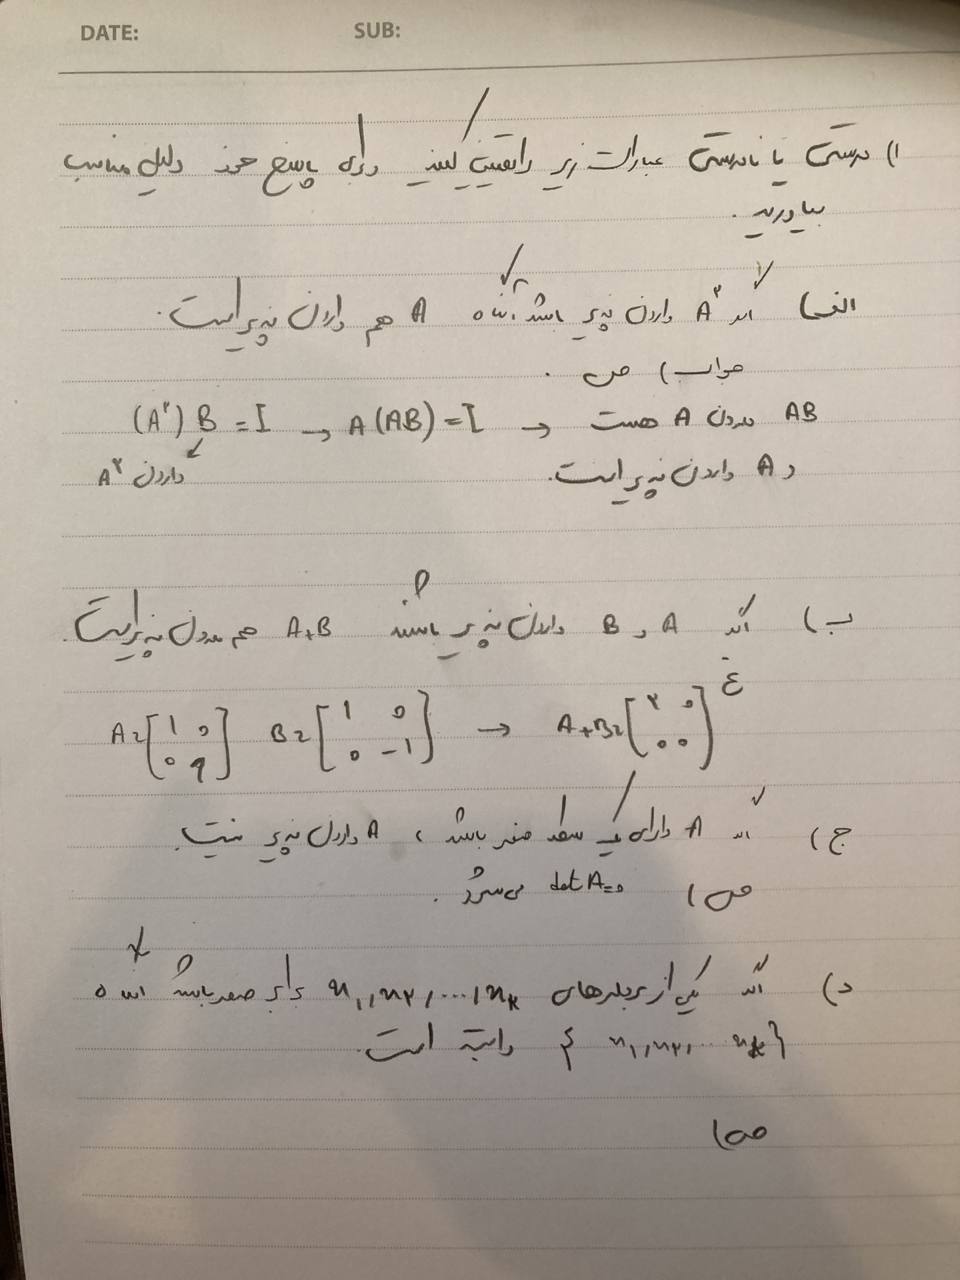 DATE: SUB:
۱) درستی یا نادرستی عبارات زیر را تعیین کنید و برای پاسخ خود دلیل مناسب
بیاورید.
الف) اگر A² وارون پذیر باشد آنگاه A هم وارون پذیر است.
جواب) ص.
(A²) B = I → A(AB) = I → AB وارون A هست
وارون A² و A وارون پذیر است.
ب) اگر A و B وارون پذیر باشند A+B هم وارون پذیر است.
غ
A=[1 0 0 1] B=[1 0 0 -1] → A+B=[۲ 0 0 0]
ج) اگر A دارای یک سطر صفر باشد، A وارون پذیر نیست.
ص) det A=0 می‌شود.
د) اگر یکی از بردارهای x₁, x₂, ..., xₖ برابر صفر باشد آنگاه
{x₁, x₂, ... xₖ} وابسته است.
ص)